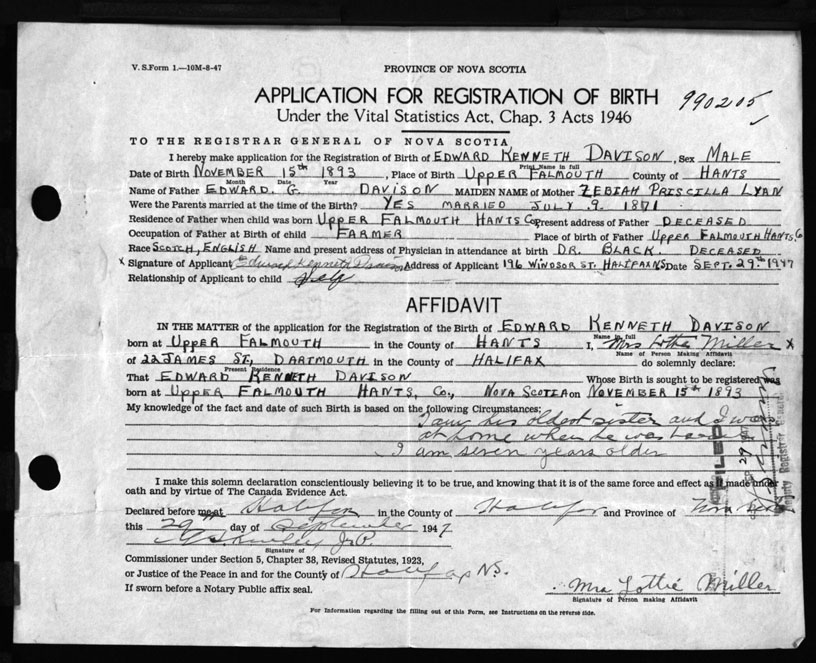 V. S. Form 1.—10M-8-47
PROVINCE OF NOVA SCOTIA
APPLICATION FOR REGISTRATION OF BIRTH 990205
Under the Vital Statistics Act, Chap. 3 Acts 1946
TO THE REGISTRAR GENERAL OF NOVA SCOTIA
I hereby make application for the Registration of Birth of EDWARD KENNETH DAVISON, Sex MALE
Print Name in full
Date of Birth NOVEMBER 15th 1893, Place of Birth UPPER FALMOUTH County of HANTS
Month Day Year
Name of Father EDWARD. G. DAVISON MAIDEN NAME of Mother ZEBIAH PRISCILLA LYAN
Were the Parents married at the time of the Birth? YES MARRIED JULY 9. 1871
Residence of Father when child was born UPPER FALMOUTH HANTS Co, Present address of Father DECEASED
Occupation of Father at Birth of child FARMER Place of birth of Father UPPER FALMOUTH HANTS, Co
Race SCOTCH, ENGLISH Name and present address of Physician in attendance at birth DR. BLACK. DECEASED
x Signature of Applicant Edward Kenneth Davison Address of Applicant 196 WINDSOR ST. HALIFAX NS Date SEPT. 29th 1947
Relationship of Applicant to child Self
AFFIDAVIT
IN THE MATTER of the application for the Registration of the Birth of EDWARD KENNETH DAVISON
Name in full
born at UPPER FALMOUTH in the County of HANTS I, Mrs Lottie Miller x
Name of Person Making Affidavit
of 22 JAMES ST, DARTMOUTH in the County of HALIFAX do solemnly declare:
Present Residence
That EDWARD KENNETH DAVISON Whose Birth is sought to be registered was
born at UPPER FALMOUTH HANTS, Co., NOVA SCOTIA on NOVEMBER 15th 1893
My knowledge of the fact and date of such Birth is based on the following Circumstances:
I am his oldest sister and I was
at home when he was born
I am seven years older
I make this solemn declaration conscientiously believing it to be true, and knowing that it is of the same force and effect as if made under
oath and by virtue of The Canada Evidence Act.
Declared before me at Halifax in the County of Halifax and Province of Nova
this 29th day of September 1947
J.P.
Signature of
Commissioner under Section 5, Chapter 38, Revised Statutes, 1923,
or Justice of the Peace in and for the County of Halifax NS.
If sworn before a Notary Public affix seal.
Mrs Lottie Miller
Signature of Person making Affidavit
For Information regarding the filling out of this Form, see Instructions on the reverse side.
FILED
29
Deputy Registrar General